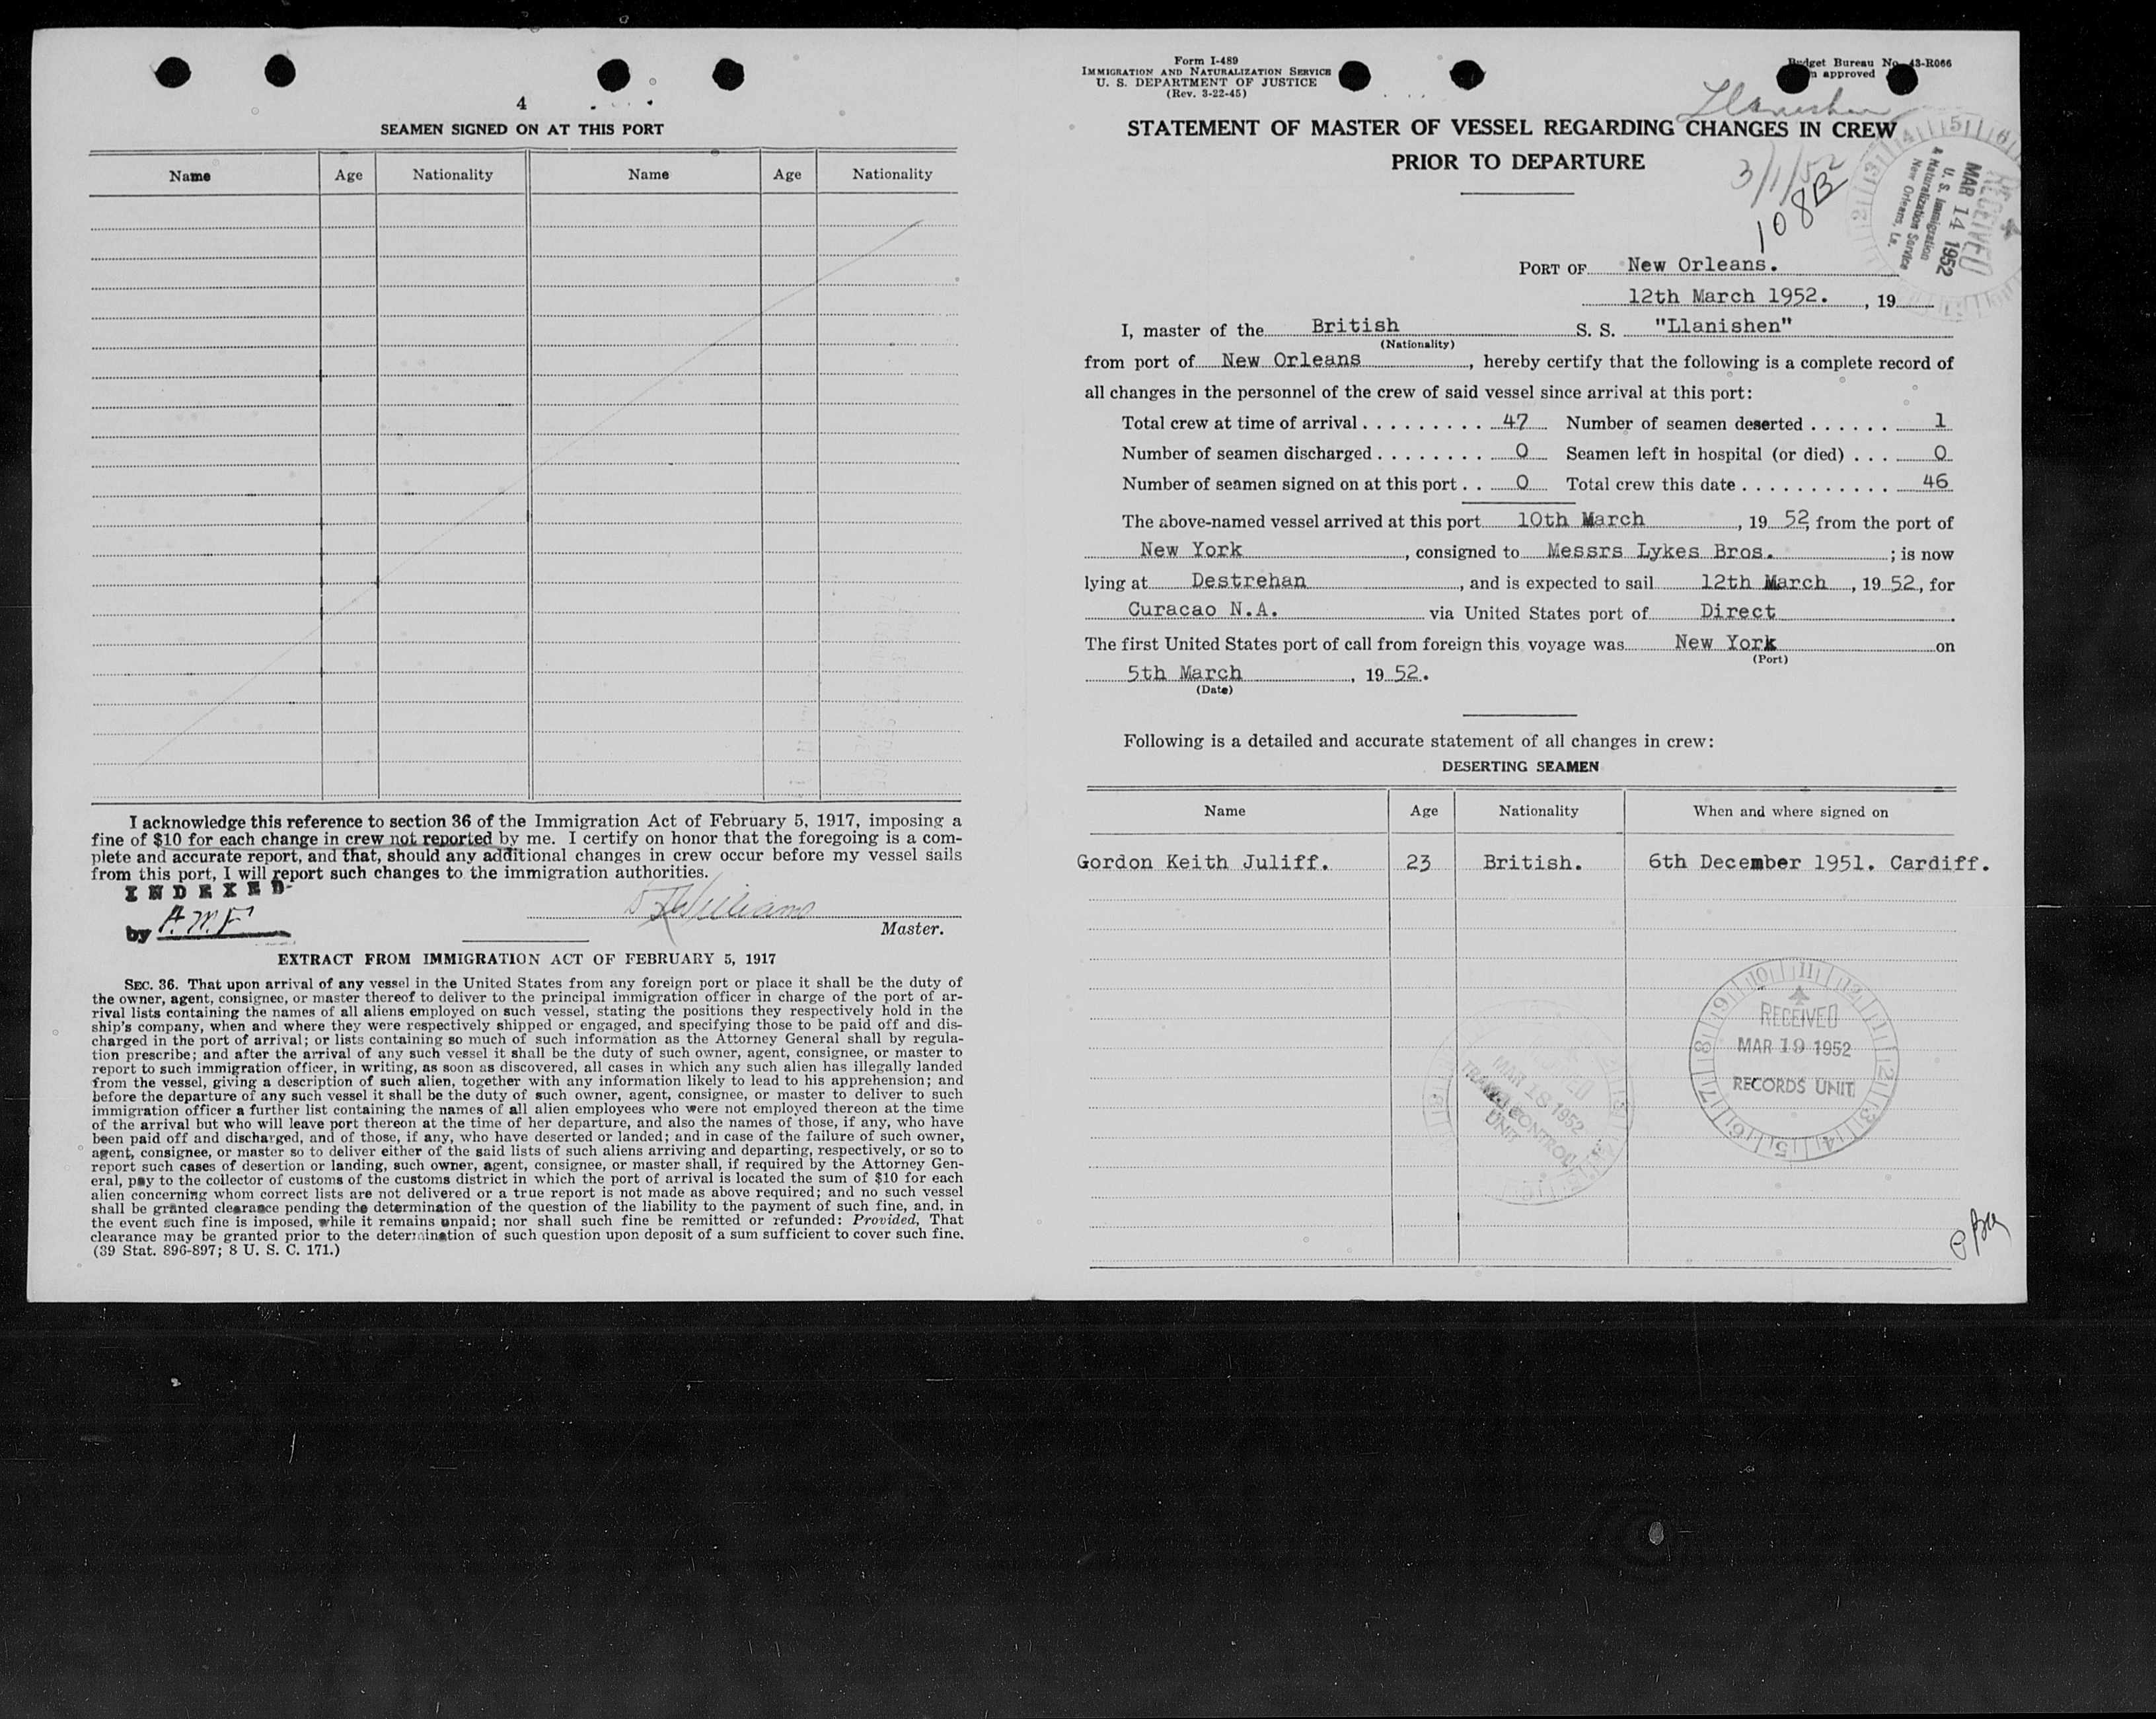 4
SEAMEN SIGNED ON AT THIS PORT
Name Age Nationality Name Age Nationality
I acknowledge this reference to section 36 of the Immigration Act of February 5, 1917, imposing a
fine of $10 for each change in crew not reported by me. I certify on honor that the foregoing is a com-
plete and accurate report, and that, should any additional changes in crew occur before my vessel sails
from this port, I will report such changes to the immigration authorities.
INDEXED
by A.M.F
Williams
Master.
EXTRACT FROM IMMIGRATION ACT OF FEBRUARY 5, 1917
SEC. 36. That upon arrival of any vessel in the United States from any foreign port or place it shall be the duty of
the owner, agent, consignee, or master thereof to deliver to the principal immigration officer in charge of the port of ar-
rival lists containing the names of all aliens employed on such vessel, stating the positions they respectively hold in the
ship's company, when and where they were respectively shipped or engaged, and specifying those to be paid off and dis-
charged in the port of arrival; or lists containing so much of such information as the Attorney General shall by regula-
tion prescribe; and after the arrival of any such vessel it shall be the duty of such owner, agent, consignee, or master to
report to such immigration officer, in writing, as soon as discovered, all cases in which any such alien has illegally landed
from the vessel, giving a description of such alien, together with any information likely to lead to his apprehension; and
before the departure of any such vessel it shall be the duty of such owner, agent, consignee, or master to deliver to such
immigration officer a further list containing the names of all alien employees who were not employed thereon at the time
of the arrival but who will leave port thereon at the time of her departure, and also the names of those, if any, who have
been paid off and discharged, and of those, if any, who have deserted or landed; and in case of the failure of such owner,
agent, consignee, or master so to deliver either of the said lists of such aliens arriving and departing, respectively, or so to
report such cases of desertion or landing, such owner, agent, consignee, or master shall, if required by the Attorney Gen-
eral, pay to the collector of customs of the customs district in which the port of arrival is located the sum of $10 for each
alien concerning whom correct lists are not delivered or a true report is not made as above required; and no such vessel
shall be granted clearance pending the determination of the question of the liability to the payment of such fine, and, in
the event such fine is imposed, while it remains unpaid; nor shall such fine be remitted or refunded: Provided, That
clearance may be granted prior to the determination of such question upon deposit of a sum sufficient to cover such fine.
(39 Stat. 896-897; 8 U. S. C. 171.)
Form I-489
IMMIGRATION AND NATURALIZATION SERVICE
U. S. DEPARTMENT OF JUSTICE
(Rev. 3-22-45)
Budget Bureau No. 43-R066
approved
Llanishen
STATEMENT OF MASTER OF VESSEL REGARDING CHANGES IN CREW
PRIOR TO DEPARTURE
3/1/52
108B
RECEIVED
MAR 14 1952
U. S. Immigration
& Naturalization Service
New Orleans, La.
PORT OF New Orleans.
12th March 1952. , 19
I, master of the British S. S. "Llanishen"
(Nationality)
from port of New Orleans , hereby certify that the following is a complete record of
all changes in the personnel of the crew of said vessel since arrival at this port:
Total crew at time of arrival . . . . . . . . . 47 Number of seamen deserted . . . . . . 1
Number of seamen discharged . . . . . . . . 0 Seamen left in hospital (or died) . . . 0
Number of seamen signed on at this port . . 0 Total crew this date . . . . . . . . . . . 46
The above-named vessel arrived at this port 10th March , 19 52, from the port of
New York , consigned to Messrs Lykes Bros. ; is now
lying at Destrehan , and is expected to sail 12th March , 19 52, for
Curacao N.A. via United States port of Direct .
The first United States port of call from foreign this voyage was New York on
(Port)
5th March , 19 52.
(Date)
Following is a detailed and accurate statement of all changes in crew:
DESERTING SEAMEN
Name Age Nationality When and where signed on
Gordon Keith Juliff. 23 British. 6th December 1951. Cardiff.
RECEIVED
MAR 19 1952
RECORDS UNIT
MAR 18 1952
TRAVEL CONTROL
UNIT